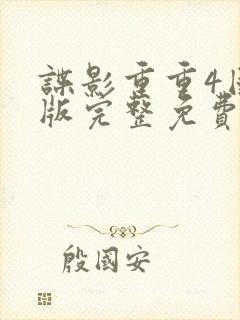 諜影重重4国
版完整免費
殷國安